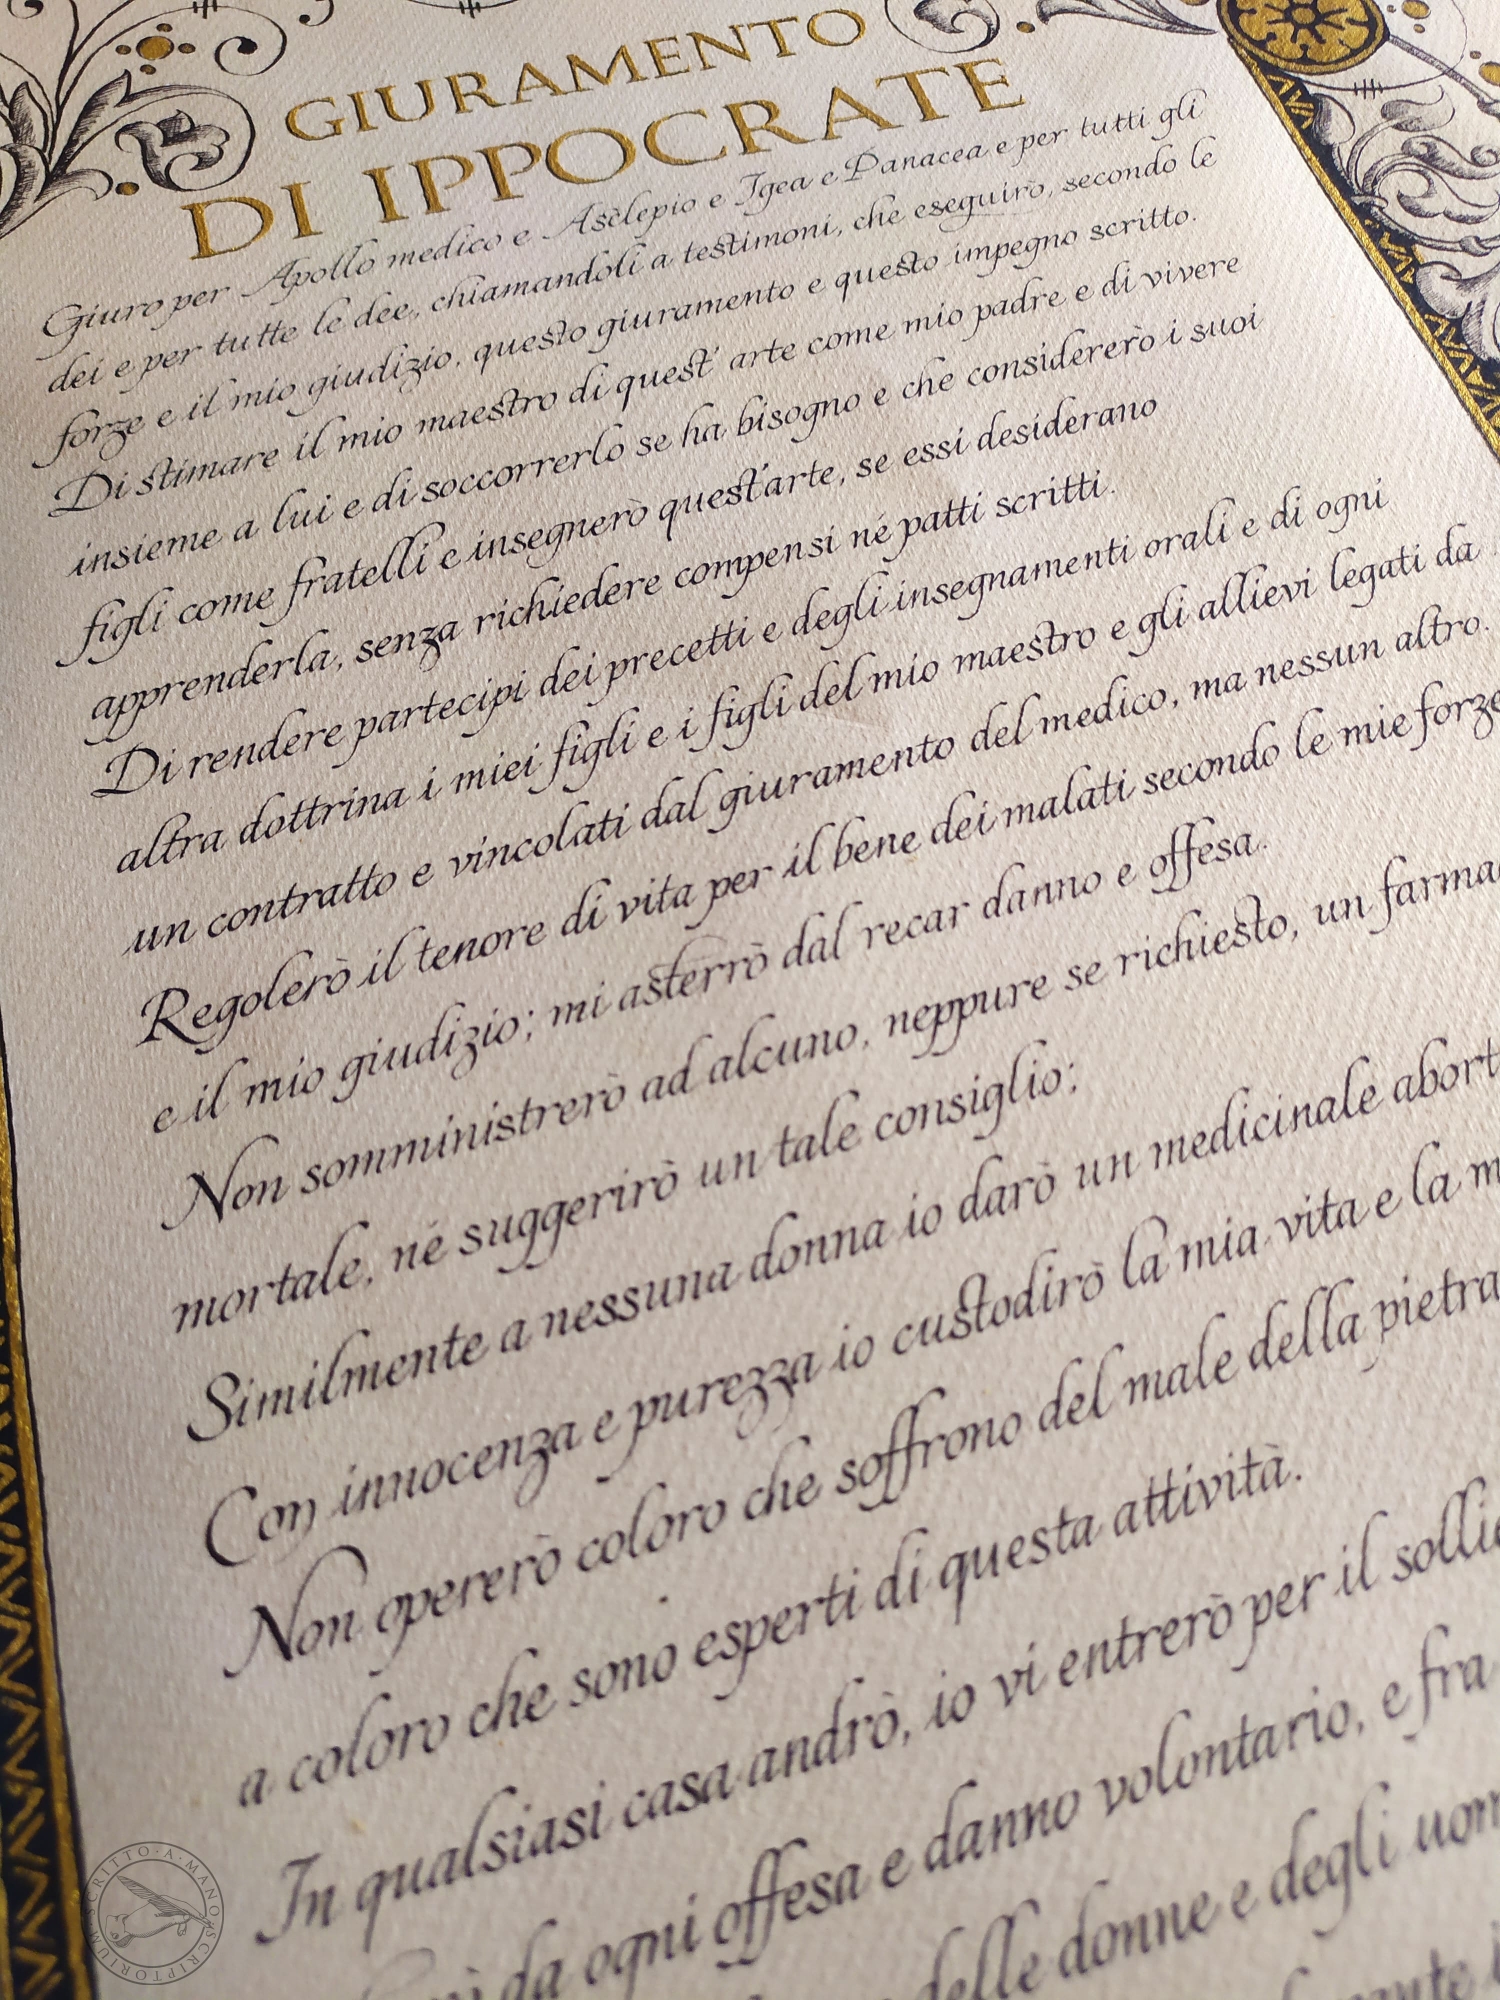 GIURAMENTO
DI IPPOCRATE
Giuro per Apollo medico e Asclepio e Igea e Panacea e per tutti gli
dei e per tutte le dee, chiamandoli a testimoni, che eseguirò, secondo le
forze e il mio giudizio, questo giuramento e questo impegno scritto.
Di stimare il mio maestro di quest' arte come mio padre e di vivere
insieme a lui e di soccorrerlo se ha bisogno e che considererò i suoi
figli come fratelli e insegnerò quest'arte, se essi desiderano
apprenderla, senza richiedere compensi né patti scritti.
Di rendere partecipi dei precetti e degli insegnamenti orali e di ogni
altra dottrina i miei figli e i figli del mio maestro e gli allievi legati da
un contratto e vincolati dal giuramento del medico, ma nessun altro.
Regolerò il tenore di vita per il bene dei malati secondo le mie forze
e il mio giudizio; mi asterrò dal recar danno e offesa.
Non somministrerò ad alcuno, neppure se richiesto, un
mortale, né suggerirò un tale consiglio;
Similmente a nessuna donna io darò un medicinale
Con innocenza e purezza io custodirò la mia vita e la
Non opererò coloro che soffrono del male della pietra
a coloro che sono esperti di questa attività.
In qualsiasi casa andrò, io vi entrerò per il
da ogni offesa e danno volontario, e fra
delle donne e degli
SCRITTO·A·MANO·SCRIPTORIUM